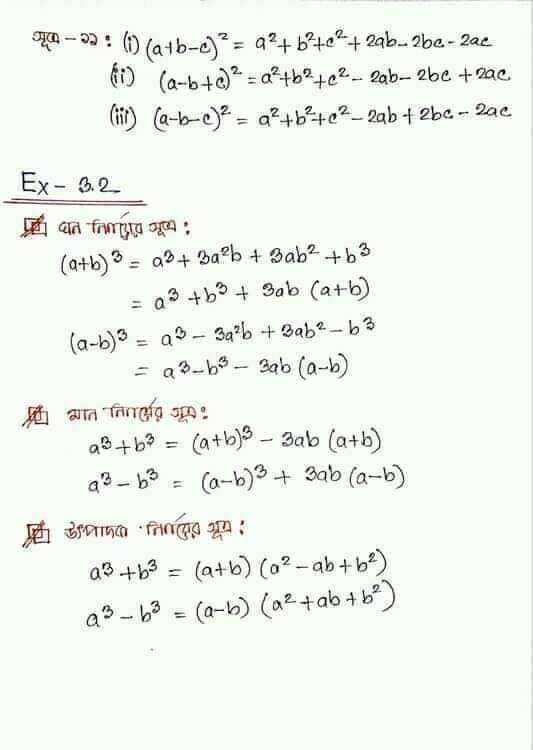 সূত্র - ১১ : (i) (a+b-c)² = a²+b²+c²+2ab-2bc-2ac
(ii) (a-b+c)² = a²+b²+c²-2ab-2bc+2ac
(iii) (a-b-c)² = a²+b²+c²-2ab+2bc-2ac
Ex - 3.2
ঘন নির্ণয়ের সূত্র :
(a+b)³ = a³+3a²b+3ab²+b³
= a³+b³+3ab (a+b)
(a-b)³ = a³-3a²b+3ab²-b³
= a³-b³-3ab (a-b)
মান নির্ণয়ের সূত্র :
a³+b³ = (a+b)³-3ab (a+b)
a³-b³ = (a-b)³+3ab (a-b)
উৎপাদক নির্ণয়ের সূত্র :
a³+b³ = (a+b) (a²-ab+b²)
a³-b³ = (a-b) (a²+ab+b²)